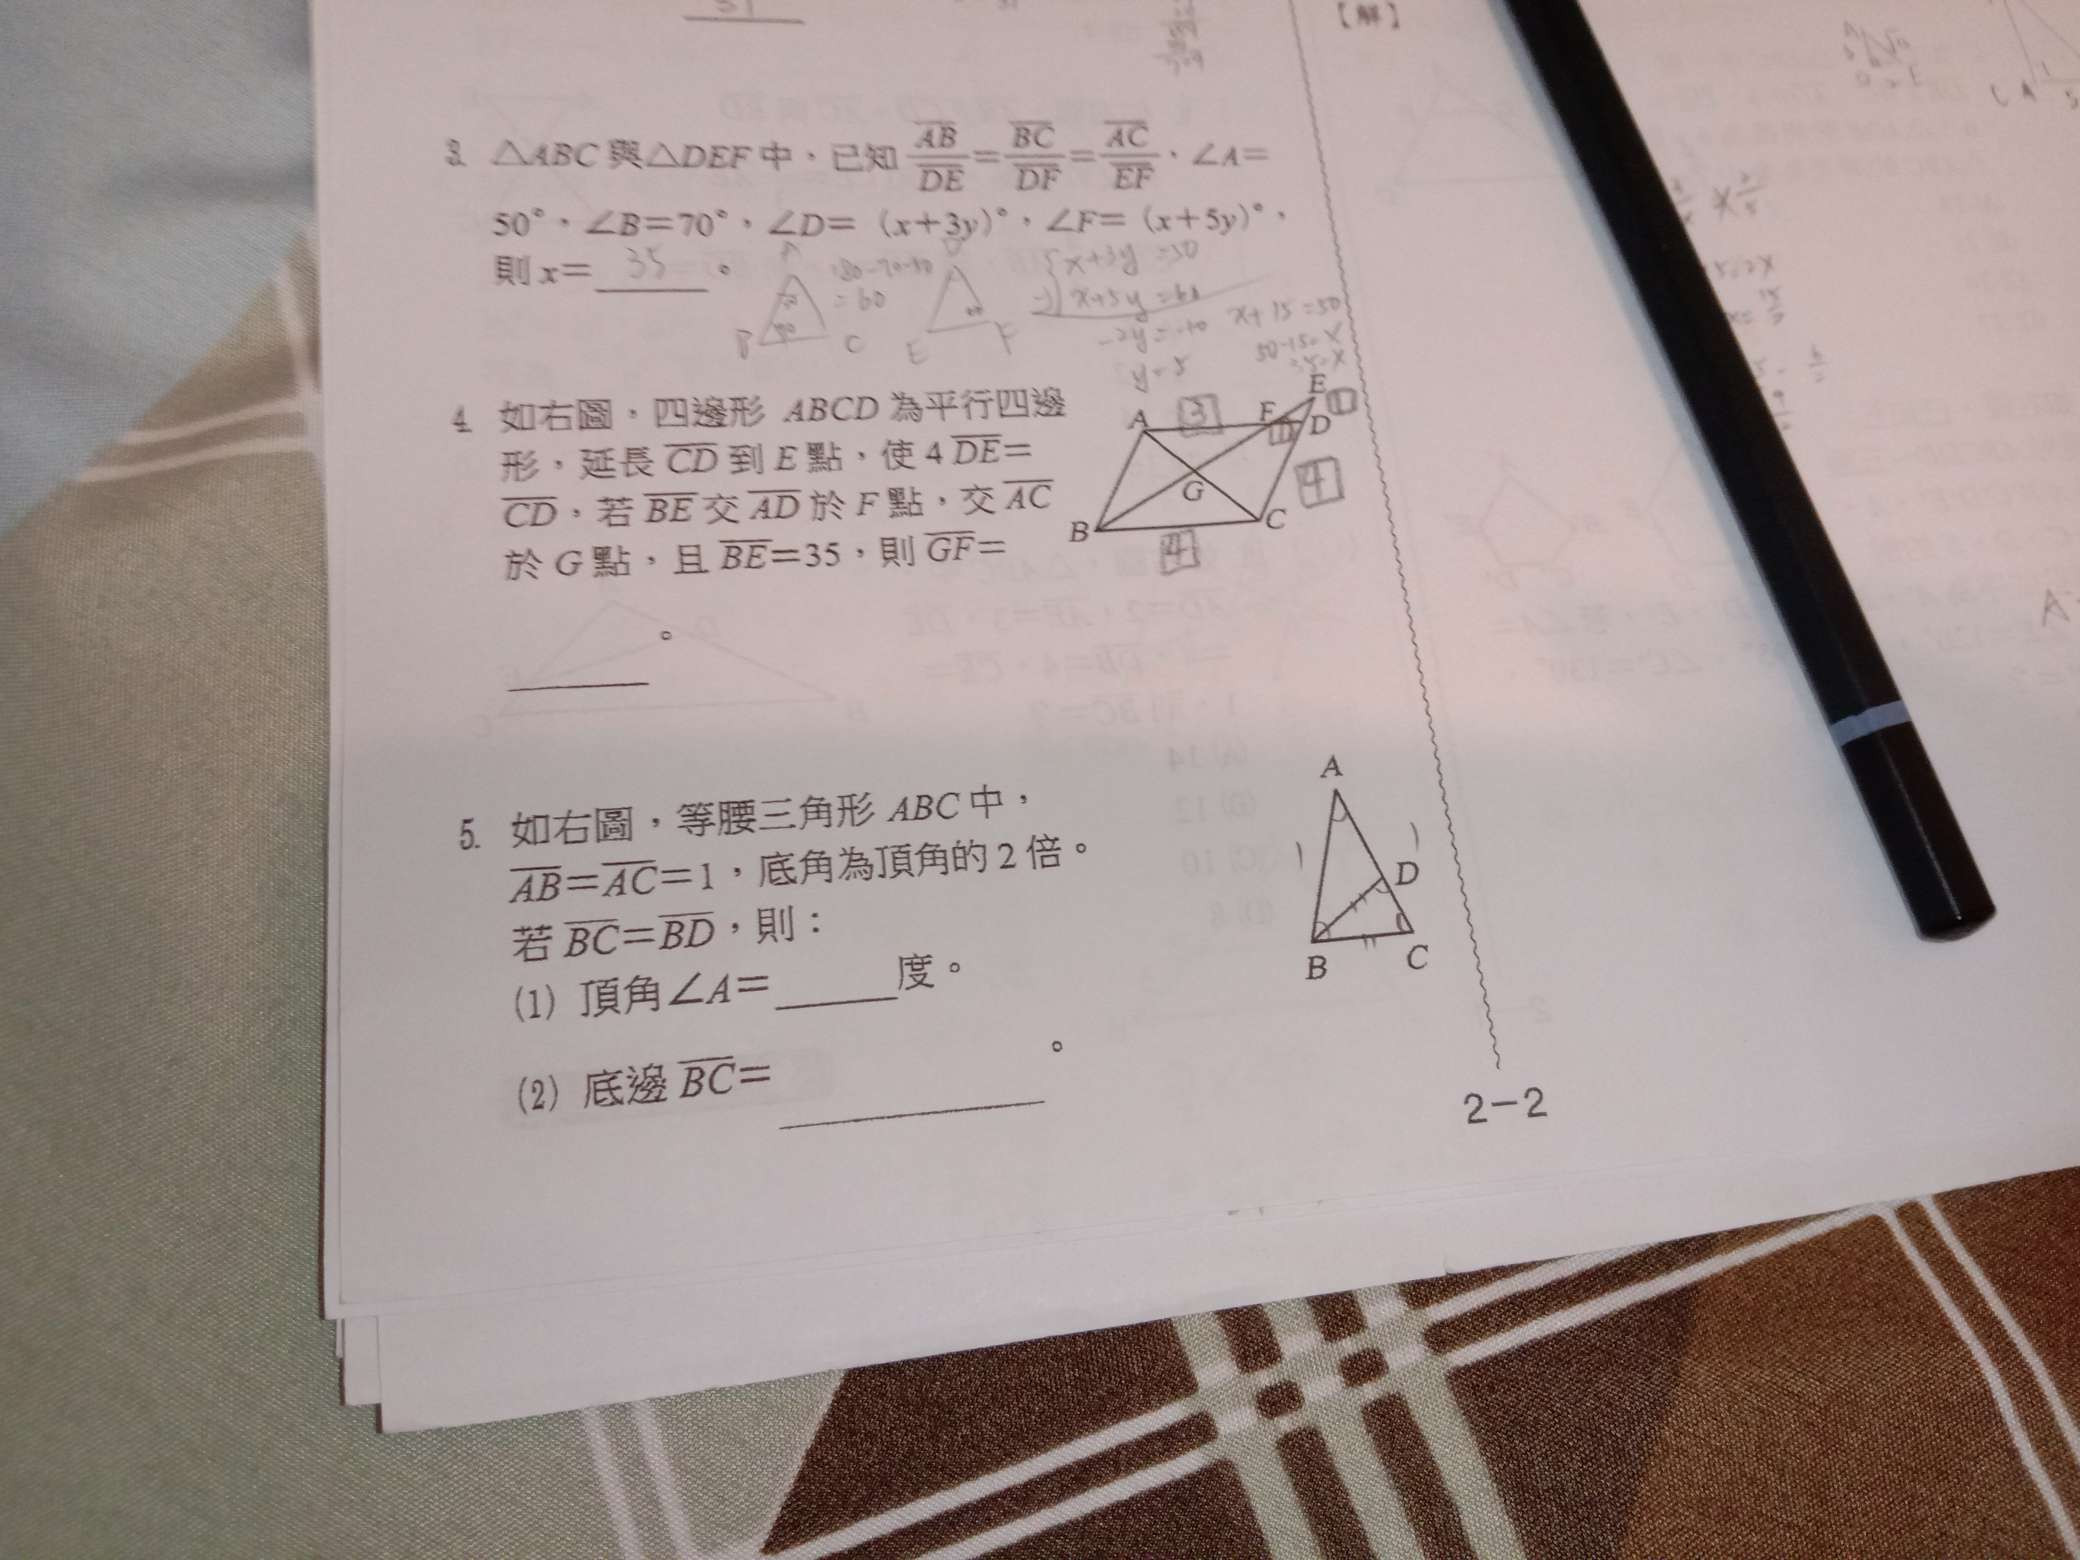 51
【解】
3. △ABC與△DEF中，已知 AB/DE=BC/DF=AC/EF，∠A=
50°，∠B=70°，∠D=（x+3y）°，∠F=（x+5y）°，
則x= 35 。
A
180-70-50
=60
B C
D
E F
x+3y=50
-) x+5y=60
-2y=-10
y=5
x+15=50
50-15=x
35=x
4. 如右圖，四邊形 ABCD 為平行四邊
形，延長 CD 到 E 點，使 4 DE=
CD，若 BE 交 AD 於 F 點，交 AC
於 G 點，且 BE=35，則 GF=
。
A 3 F E 1
1 D
G 4
B C
4
5. 如右圖，等腰三角形 ABC 中，
AB=AC=1，底角為頂角的 2 倍。
若 BC=BD，則：
(1) 頂角∠A= 度。
(2) 底邊 BC= 。
A
1 1
D
B C
2-2